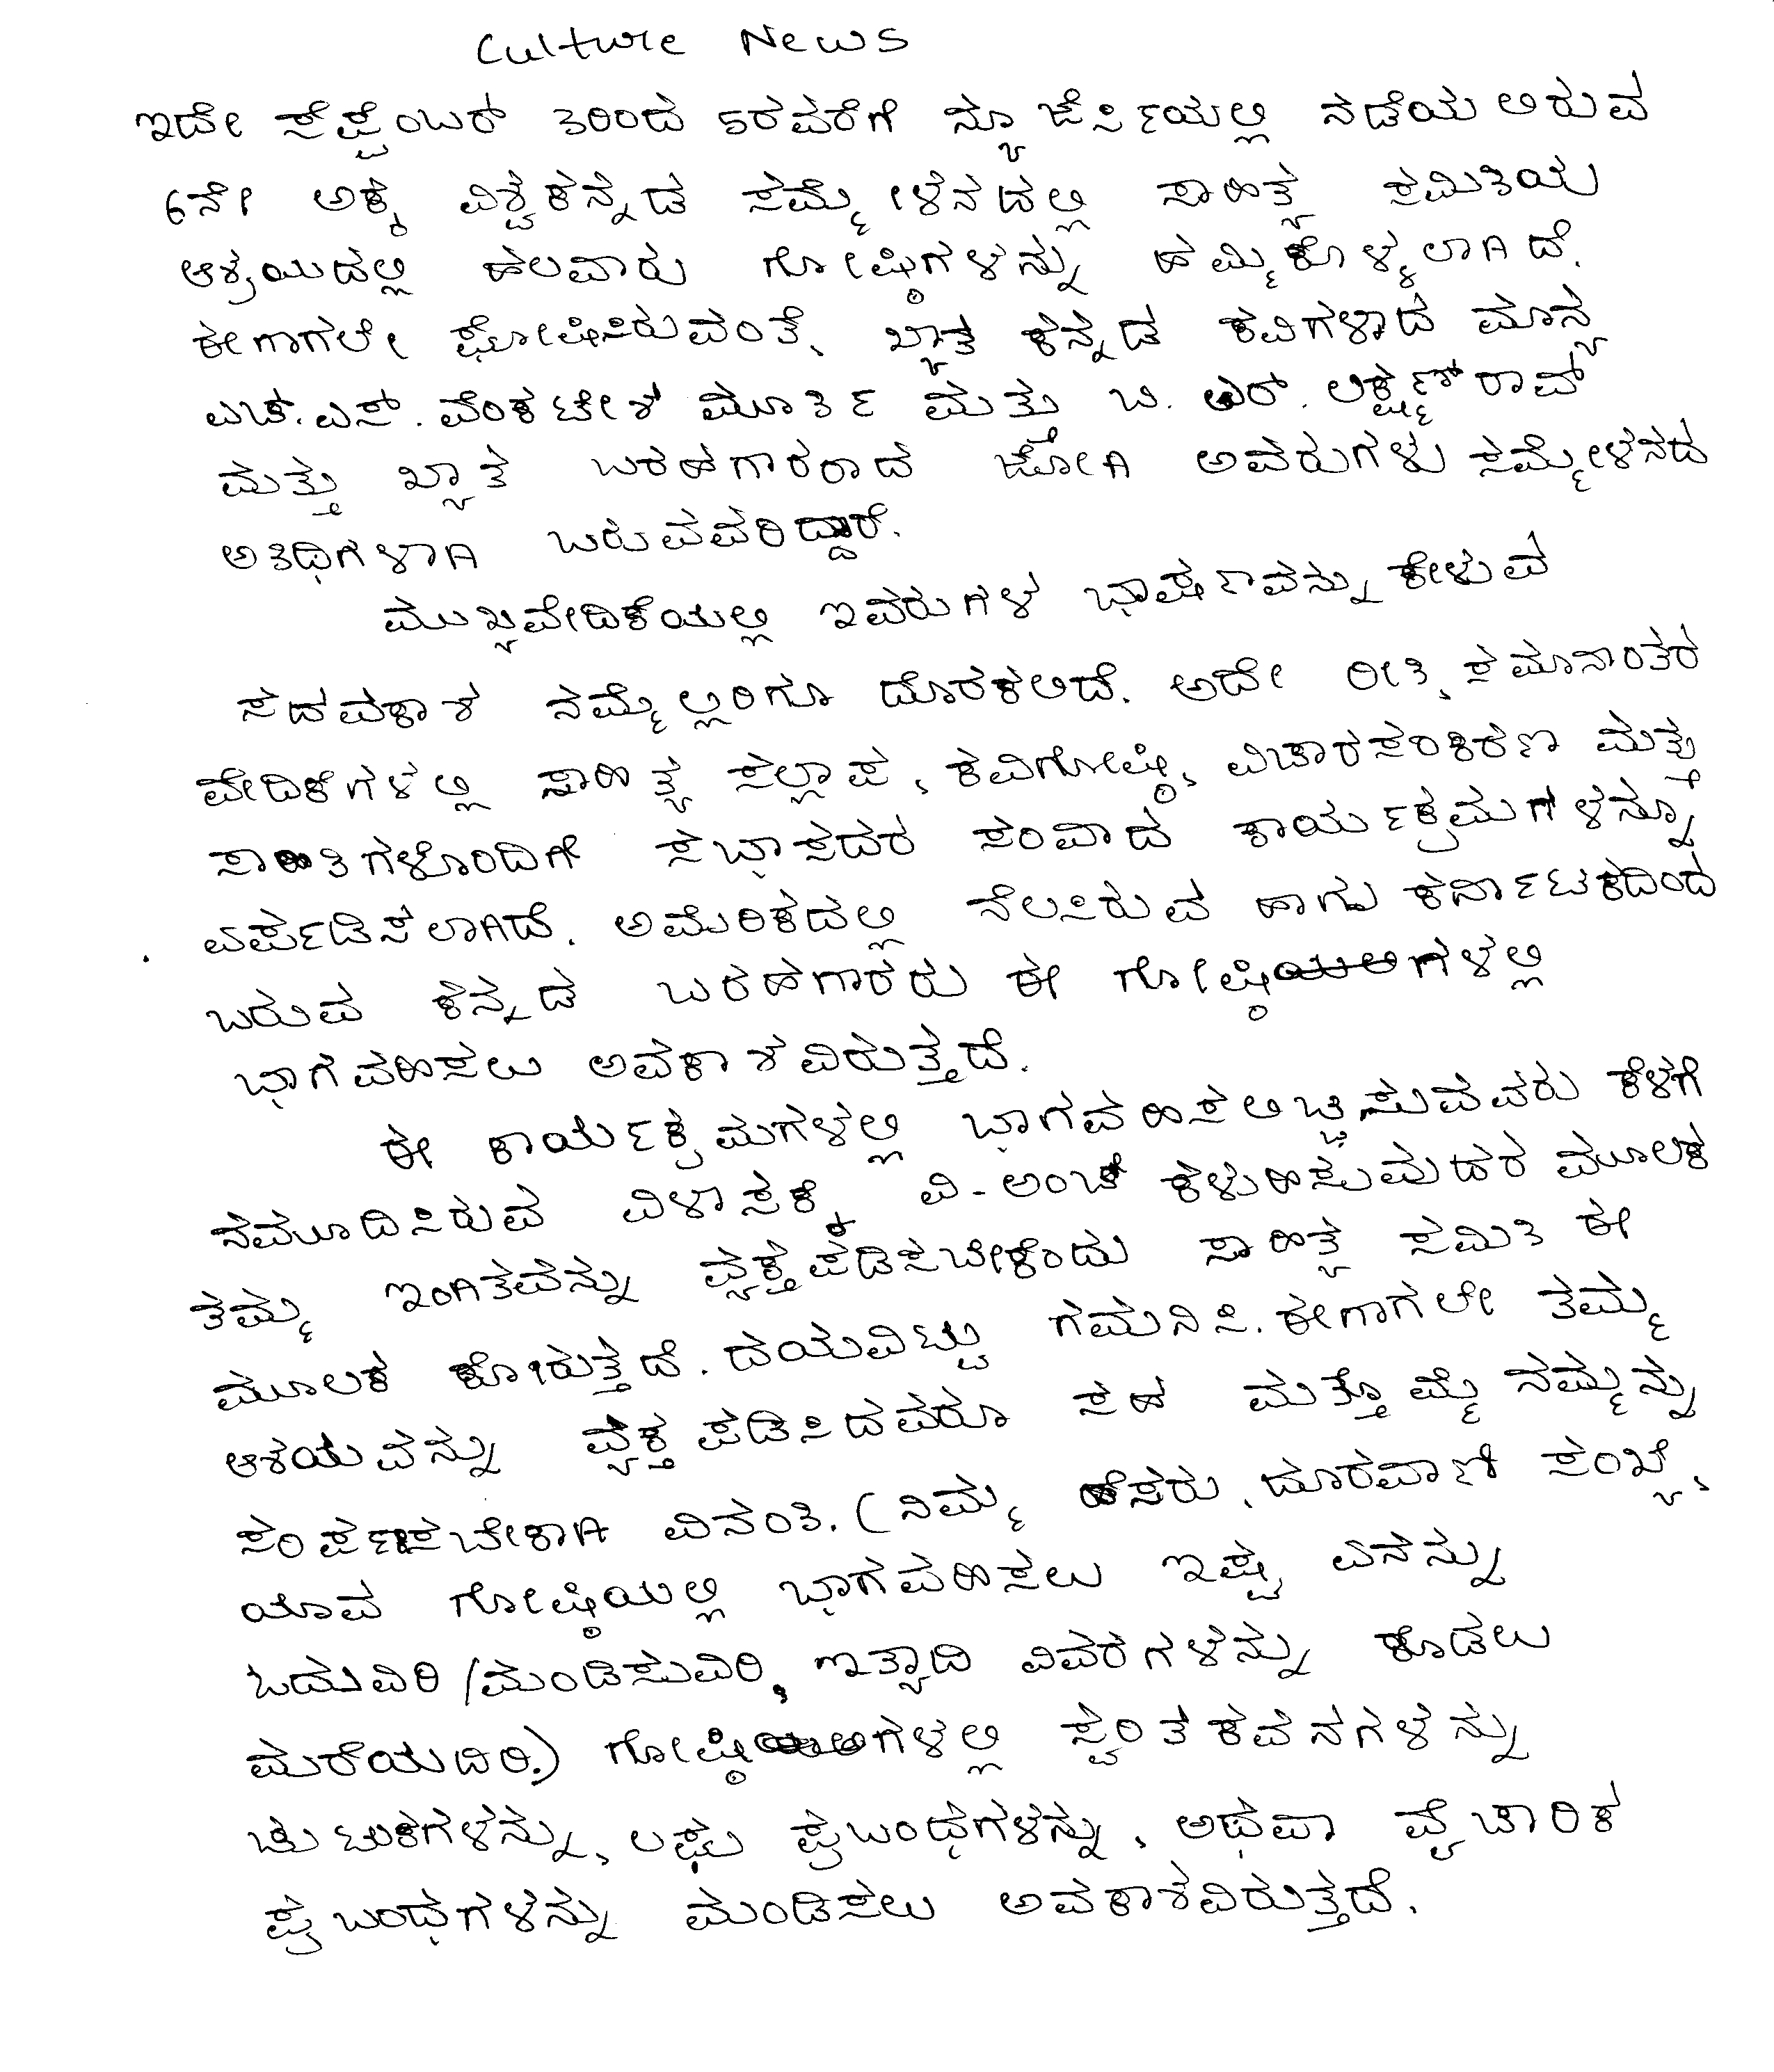 Culture News
ಇದೇ ಸೆಪ್ಟೆಂಬರ್ 3ರಿಂದ 5ರವರೆಗೆ ನ್ಯೂಜೆರ್ಸಿಯಲ್ಲಿ ನಡೆಯಲಿರುವ
6ನೇ ಅಕ್ಕ ವಿಶ್ವಕನ್ನಡ ಸಮ್ಮೇಳನದಲ್ಲಿ ಸಾಹಿತ್ಯ ಸಮಿತಿಯ
ಆಶ್ರಯದಲ್ಲಿ ಹಲವಾರು ಗೋಷ್ಠಿಗಳನ್ನು ಹಮ್ಮಿಕೊಳ್ಳಲಾಗಿದೆ.
ಈಗಾಗಲೇ ಘೋಷಿಸಿರುವಂತೆ, ಖ್ಯಾತ ಕನ್ನಡ ಕವಿಗಳಾದ ಮಾನ್ಯ
ಎಚ್.ಎಸ್. ವೆಂಕಟೇಶ ಮೂರ್ತಿ ಮತ್ತು ಬಿ. ಆರ್. ಲಕ್ಷ್ಮಣ್ ರಾವ್
ಮತ್ತು ಖ್ಯಾತ ಬರಹಗಾರರಾದ ಜೋಗಿ ಅವರುಗಳು ಸಮ್ಮೇಳನದ
ಅತಿಥಿಗಳಾಗಿ ಬರುವವರಿದ್ದಾರೆ.
ಮುಖ್ಯವೇದಿಕೆಯಲ್ಲಿ ಇವರುಗಳ ಭಾಷಣವನ್ನು ಕೇಳುವ
ಸದವಕಾಶ ನಮ್ಮೆಲ್ಲರಿಗೂ ದೊರಕಲಿದೆ. ಅದೇ ರೀತಿ, ಸಮಾನಾಂತರ
ವೇದಿಕೆಗಳಲ್ಲಿ ಸಾಹಿತ್ಯ ಸಲ್ಲಾಪ, ಕವಿಗೋಷ್ಠಿ, ವಿಚಾರಸಂಕಿರಣ ಮತ್ತು
ಸಾಹಿತಿಗಳೊಂದಿಗೆ ಸಭಾಸದರ ಸಂವಾದ ಕಾರ್ಯಕ್ರಮಗಳನ್ನೂ
ಏರ್ಪಡಿಸಲಾಗಿದೆ. ಅಮೆರಿಕದಲ್ಲಿ ನೆಲಸಿರುವ ಹಾಗು ಕರ್ನಾಟಕದಿಂದ
ಬರುವ ಕನ್ನಡ ಬರಹಗಾರರು ಈ ಗೋಷ್ಠಿಗಳಲ್ಲಿ
ಭಾಗವಹಿಸಲು ಅವಕಾಶವಿರುತ್ತದೆ.
ಈ ಕಾರ್ಯಕ್ರಮಗಳಲ್ಲಿ ಭಾಗವಹಿಸಲಿಚ್ಛಿಸುವವರು ಕೆಳಗೆ
ನಮೂದಿಸಿರುವ ವಿಳಾಸಕ್ಕೆ ವಿ-ಅಂಚೆ ಕಳುಹಿಸುವುದರ ಮೂಲಕ
ತಮ್ಮ ಇಂಗಿತವನ್ನು ವ್ಯಕ್ತಪಡಿಸಬೇಕೆಂದು ಸಾಹಿತ್ಯ ಸಮಿತಿ ಈ
ಮೂಲಕ ಕೋರುತ್ತದೆ. ದಯವಿಟ್ಟು ಗಮನಿಸಿ. ಈಗಾಗಲೇ ತಮ್ಮ
ಆಶಯವನ್ನು ವ್ಯಕ್ತಪಡಿಸಿದವರೂ ಸಹ ಮತ್ತೊಮ್ಮೆ ನಮ್ಮನ್ನು
ಸಂಪರ್ಕಿಸಬೇಕಾಗಿ ವಿನಂತಿ. (ನಿಮ್ಮ ಹೆಸರು, ದೂರವಾಣಿ ಸಂಖ್ಯೆ,
ಯಾವ ಗೋಷ್ಠಿಯಲ್ಲಿ ಭಾಗವಹಿಸಲು ಇಷ್ಟ, ಏನನ್ನು
ಓದುವಿರಿ/ಮಂಡಿಸುವಿರಿ, ಇತ್ಯಾದಿ ವಿವರಗಳನ್ನು ಕೊಡಲು
ಮರೆಯದಿರಿ.) ಗೋಷ್ಠಿಗಳಲ್ಲಿ ಸ್ವರಚಿತ ಕವನಗಳನ್ನು
ಚುಟುಕಗಳನ್ನು, ಲಘು ಪ್ರಬಂಧಗಳನ್ನು, ಅಥವಾ ವೈಚಾರಿಕ
ಪ್ರಬಂಧಗಳನ್ನು ಮಂಡಿಸಲು ಅವಕಾಶವಿರುತ್ತದೆ.